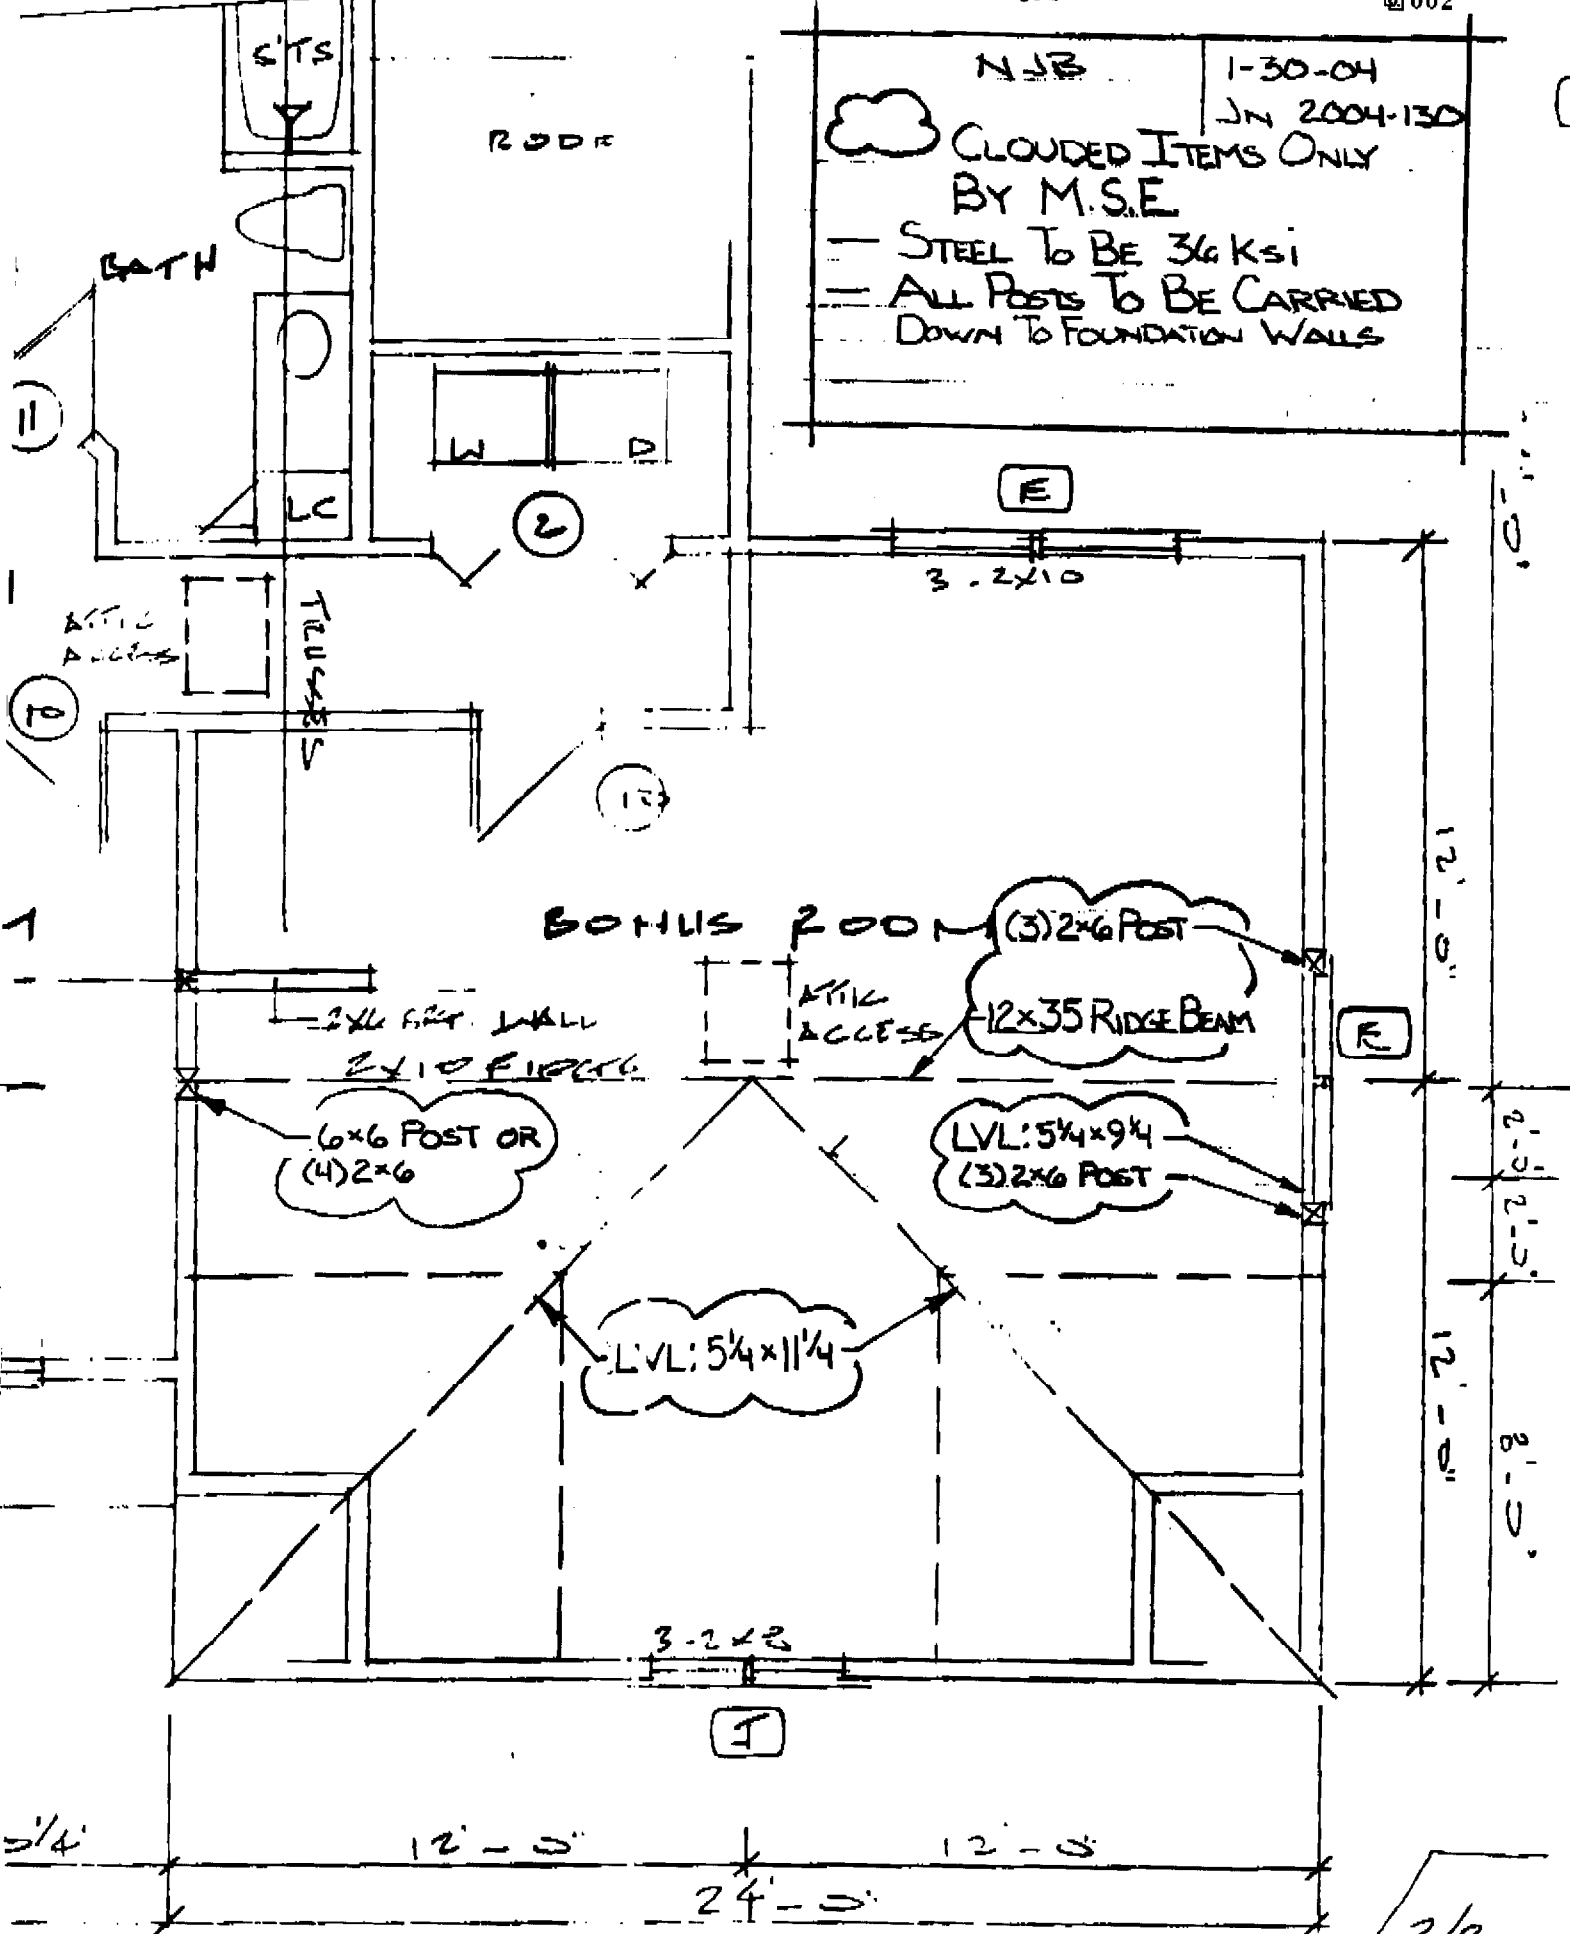 002
NJB
1-30-04
JN 2004-130
CLOUDED ITEMS ONLY
BY M.S.E.
— STEEL TO BE 36 KSI
— ALL POSTS TO BE CARRIED
DOWN TO FOUNDATION WALLS
5'TS
ROOF
BATH
11
W
D
LC
2
E
3-2x10
ATTIC
ACCESS
TRUSSES
12'-0"
BONUS ROOM
(3) 2x6 POST
12x35 RIDGE BEAM
ATTIC
ACCESS
WALL
2x10
E
6x6 POST OR
(4) 2x6
LVL: 5¼x9¼
(3) 2x6 POST
2'-0"
2'-0"
LVL: 5¼x11¼
12'-0"
8'-0"
3-2x8
I
12'-0"
12'-0"
24'-0"